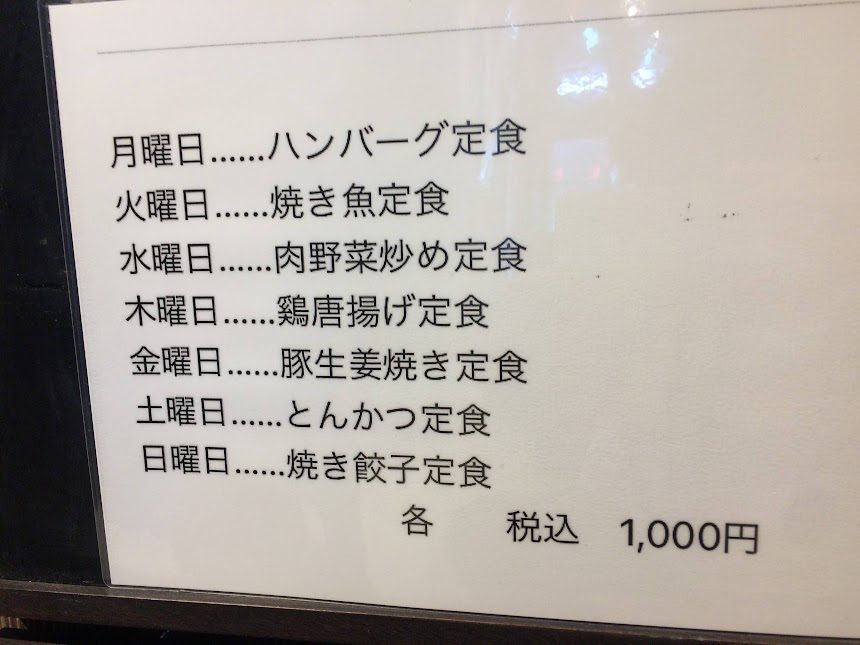 月曜日……ハンバーグ定食
火曜日……焼き魚定食
水曜日……肉野菜炒め定食
木曜日……鶏唐揚げ定食
金曜日……豚生姜焼き定食
土曜日……とんかつ定食
日曜日……焼き餃子定食
各　税込　1,000円